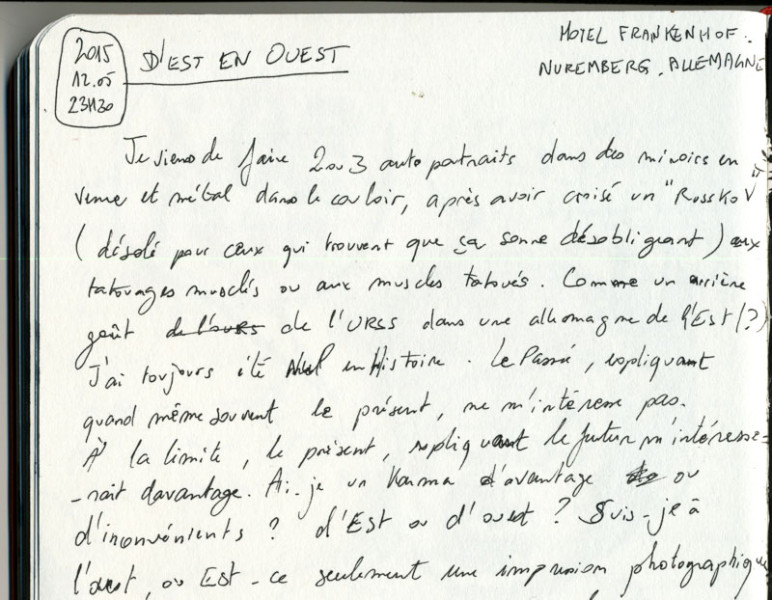 2015
12.05
23H30
D'EST EN OUEST
HOTEL FRANKENHOF.
NUREMBERG. ALLEMAGNE
Je viens de faire 2 ou 3 autoportraits dans des miroirs en
verre et métal dans le couloir, après avoir croisé un "RossKoV"
(désolé pour ceux qui trouvent que ça sonne désobligeant) aux
tatouages musclés ou aux muscles tatoués. Comme un arrière
goût de l'ours de l'URSS dans une allemagne de l'Est (?)
J'ai toujours été Nul en Histoire. Le Passé, expliquant
quand même souvent le présent, ne m'intéresse pas.
À la limite, le présent, expliquant le futur m'intéresse-
-rait davantage. Ai-je un Karma d'avantage ou
d'inconvénients ? d'Est ou d'ouest ? Suis-je à
l'ouest, ou Est-ce seulement une impression photographique